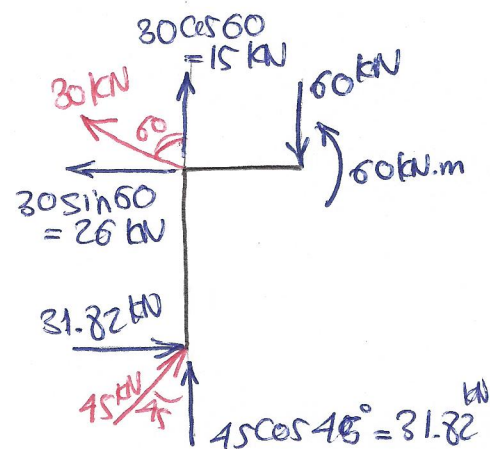 30cos60
= 15 kN
30kN
60
60kN
60kN.m
30sin60
= 26 kN
31.82 kN
45 kN
45
45cos45° = 31.82 kN